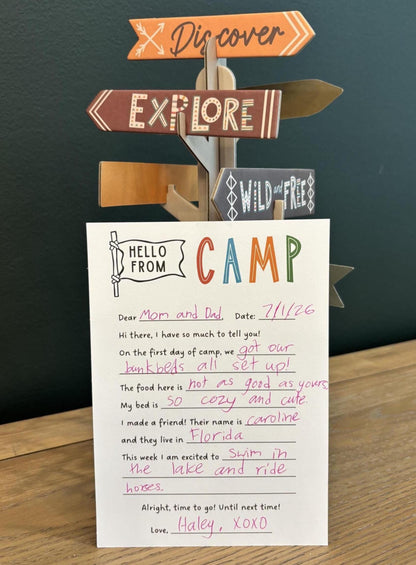 Discover
EXPLORE
WILD and FREE
HELLO FROM
CAMP
Dear Mom and Dad, Date: 7/1/26
Hi there, I have so much to tell you!
On the first day of camp, we got our
bunkbeds all set up!
The food here is not as good as yours.
My bed is so cozy and cute.
I made a friend! Their name is caroline
and they live in Florida
This week I am excited to swim in
the lake and ride
horses.
Alright, time to go! Until next time!
Love, Haley, XOXO